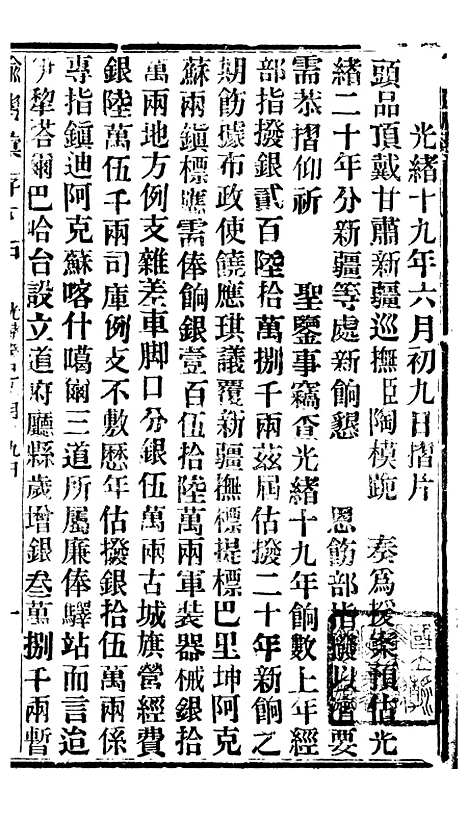 光緒十九年六月初九日摺片
頭品頂戴甘肅新疆巡撫臣陶模跪 奏爲援案預估光
緒二十年分新疆等處新餉懇 恩飭部指撥以濟要
需恭摺仰祈 聖鑒事竊查光緒十九年餉數上年經
部指撥銀貳百陸拾萬捌千兩茲屆估撥二十年新餉之
期飭據布政使饒應琪議覆新疆撫標提標巴里坤阿克
蘇兩鎭標應需俸餉銀壹百伍拾陸萬兩軍裝器械銀拾
萬兩地方例支雜差車脚口分銀伍萬兩古城旗營經費
銀陸萬伍千兩司庫例支不敷歷年估撥銀拾伍萬兩係
專指鎭迪阿克蘇喀什噶爾三道所屬廉俸驛站而言迨
伊犂塔爾巴哈台設立道府廳縣歲增銀叁萬捌千兩暫
諭摺彙存
一